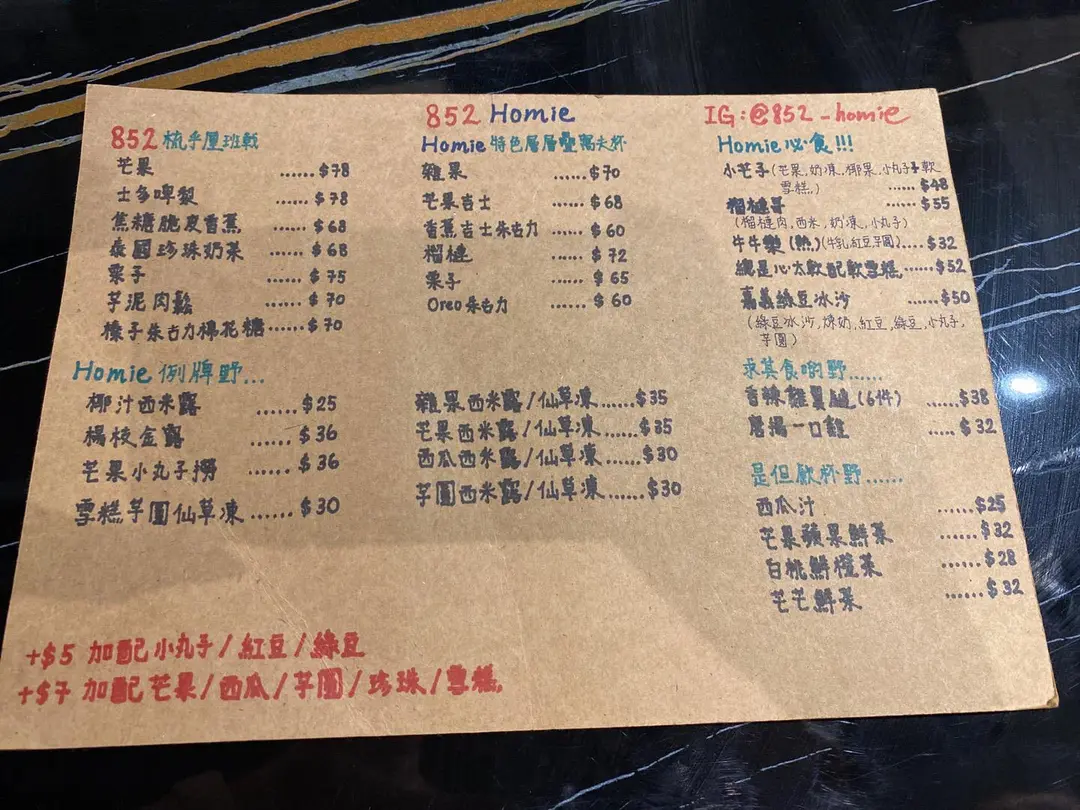 852 Homie
IG:@852_homie
852 梳乎厘班戟
芒果 ......$78
士多啤梨 ......$78
焦糖脆皮香蕉 ......$68
泰國珍珠奶茶 ......$68
栗子 ......$75
芋泥肉鬆 ......$70
榛子朱古力棉花糖......$70
Homie 例牌野...
椰汁西米露 ......$25
楊枝金露 ......$36
芒果小丸子撈 ......$36
雪糕芋圓仙草凍......$30
Homie 特色層層疊窩夫杯
雜果 ......$70
芒果吉士 ......$68
香蕉吉士朱古力 ......$60
榴槤 ......$72
栗子 ......$65
Oreo朱古力 ......$60
雜果西米露/仙草凍......$35
芒果西米露/仙草凍......$35
西瓜西米露/仙草凍......$30
芋圓西米露/仙草凍......$30
Homie必食!!!
小芒子(芒果,奶凍,椰果,小丸子,軟
雪糕,) ......$48
榴槤哥 ......$55
(榴槤肉,西米,奶凍,小丸子)
牛牛樂(熱)(牛乳紅豆芋圓)....$32
總是心太軟配軟雪糕......$52
嘉義綠豆冰沙 ......$50
(綠豆冰沙,煉奶,紅豆,綠豆,小丸子,
芋圓)
求其食啲野......
香辣雞翼槌(6件) ......$38
唐揚一口雞 .....$32
是但飲杯野......
西瓜汁 ......$25
芒果蘋果鮮菓 ......$32
白桃鮮橙菓 ......$28
芒芒鮮菓 ......$32
+$5 加配小丸子/紅豆/綠豆
+$7 加配芒果/西瓜/芋圓/珍珠/雪糕